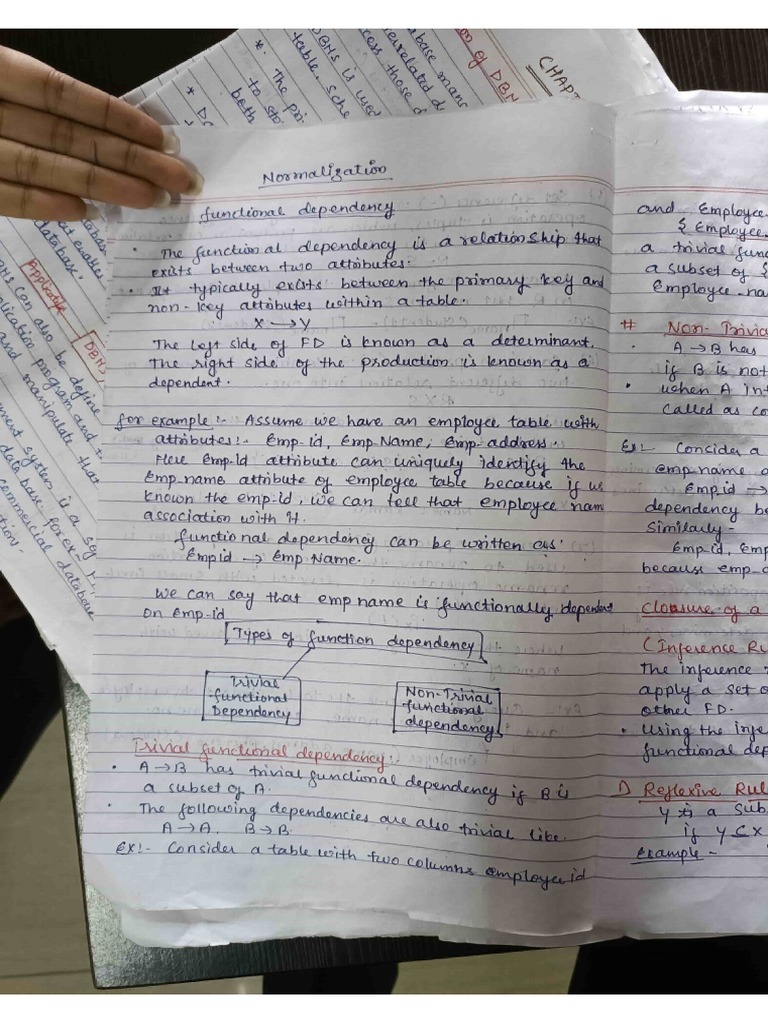 Normalization
functional dependency
• The functional dependency is a relationship that
exists between two attributes.
• It typically exists between the primary key and
non-key attributes within a table.
X → Y
The left side of FD is known as a determinant.
The right side of the production is known as a
dependent.
for example:- Assume we have an employee table with
attributes:- Emp-id, Emp-Name, Emp-address.
Here Emp-Id attribute can uniquely identify the
Emp-name attribute of employee table because if we
known the emp-id, we can tell that employee nam
association with it.
functional dependency can be written as:
Empid → Emp Name.
We can say that emp name is functionally dependent
on Emp-id
Types of function dependency
Trivial
functional
Dependency
Non-Trivial
functional
dependency
Trivial functional dependency:-
• A → B has trivial functional dependency if B is
a subset of A.
• The following dependencies are also trivial like.
A → A, B → B.
Ex:- Consider a table with two columns employee id
and Employee
{ Employee
a trivial func
a subset of {
Employee-na
# Non-Trivia
• A → B has
if B is not
• when A int
called as co
Ex:- Consider a
emp name a
Emp.id →
dependency be
Similarly-
Emp-id, Emp
because emp-
Closure of a
(Inference Ru
The inference
apply a set o
other FD.
• Using the infe
functional dep
1) Reflexive Rul
Y is a sub
if Y ⊆ X
Example -
CHAPT
n of DBM
base mana
errelated d
cess those d
DBMS is used
table. Sche
* The pri
to sto
both
Application
DBMS
database.
MS can also be define
plication program and t
and manipulate that
ment system is a so
data base for ex-
commercial database